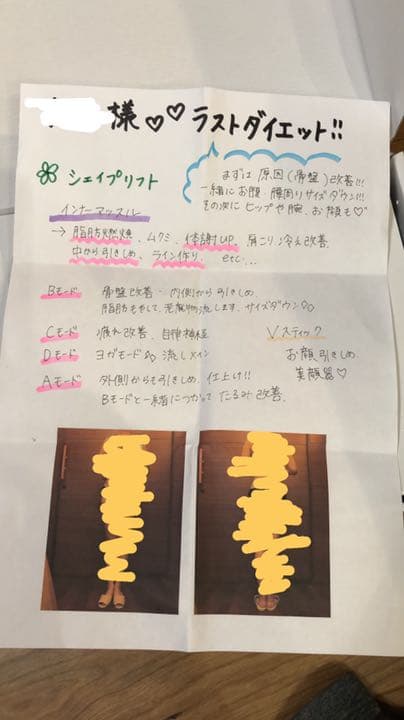 様♡♡ ラストダイエット!!
まずは 原因(骨盤)改善!!!
一緒にお腹、腰周りサイズダウン!!
その次に ヒップや腕、お顔も♡
シェイプリフト
インナーマッスル
→ 脂肪燃焼、ムクミ、体謝UP、肩こり、冷え改善
中から引きしめ、ライン作り、 etc...
Bモード 骨盤改善… 内側から引きしめ
脂肪もやして、老廃物流します、サイズダウン♡♡
Cモード 疲れ改善、自律神経
Dモード ヨガモード♡♡ 流しメイン
Aモード 外側からも引きしめ、仕上げ!!
Bモードと一緒につかって たるみ改善、
Vスティック
お顔引きしめ
美顔器♡